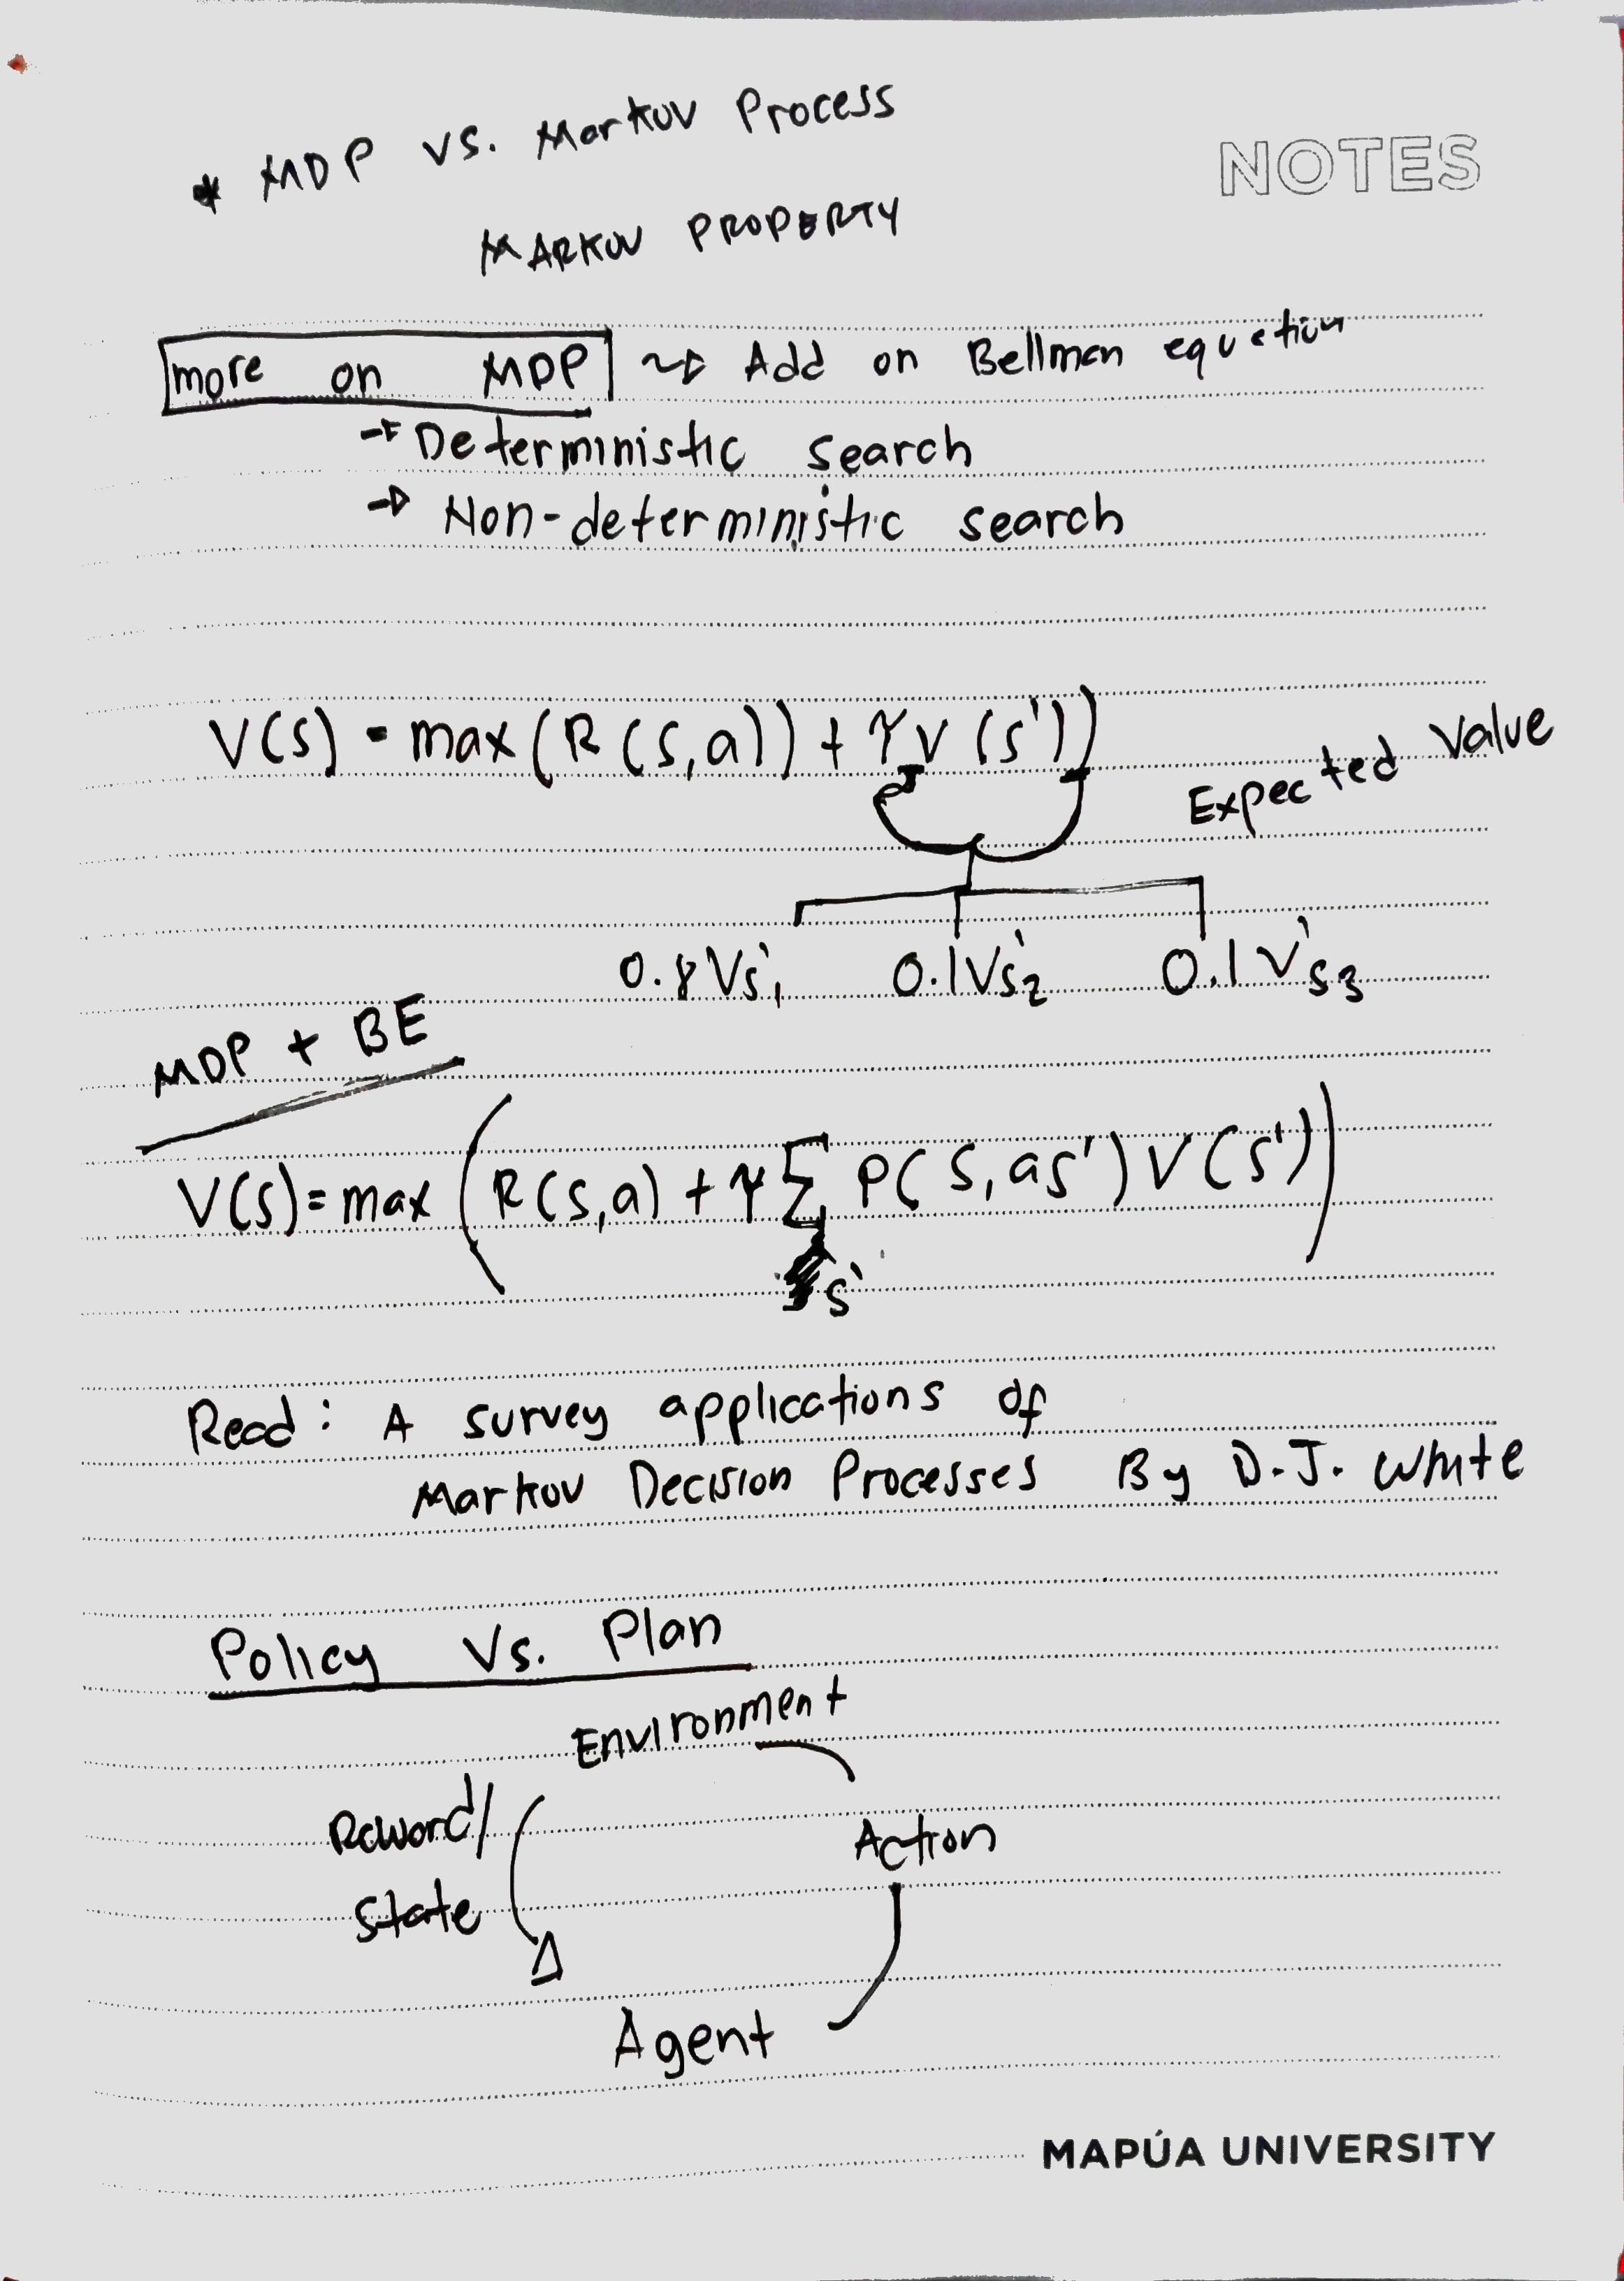 * MDP vs. Markov Process
NOTES
MARKOV PROPERTY
more on MDP ~> Add on Bellman equation
→ Deterministic search
→ Non-deterministic search
V(s) = max(R(s,a)) + γV(s'))
Expected Value
0.8Vs'1 0.1Vs'2 0.1V's3
MDP + BE
V(s) = max (R(s,a) + γ∑ P(s,as') V(s'))
s'
Read: A survey applications of
Markov Decision Processes By D.J. White
Policy Vs. Plan
Environment
Reward/
Action
State
Agent
MAPÚA UNIVERSITY